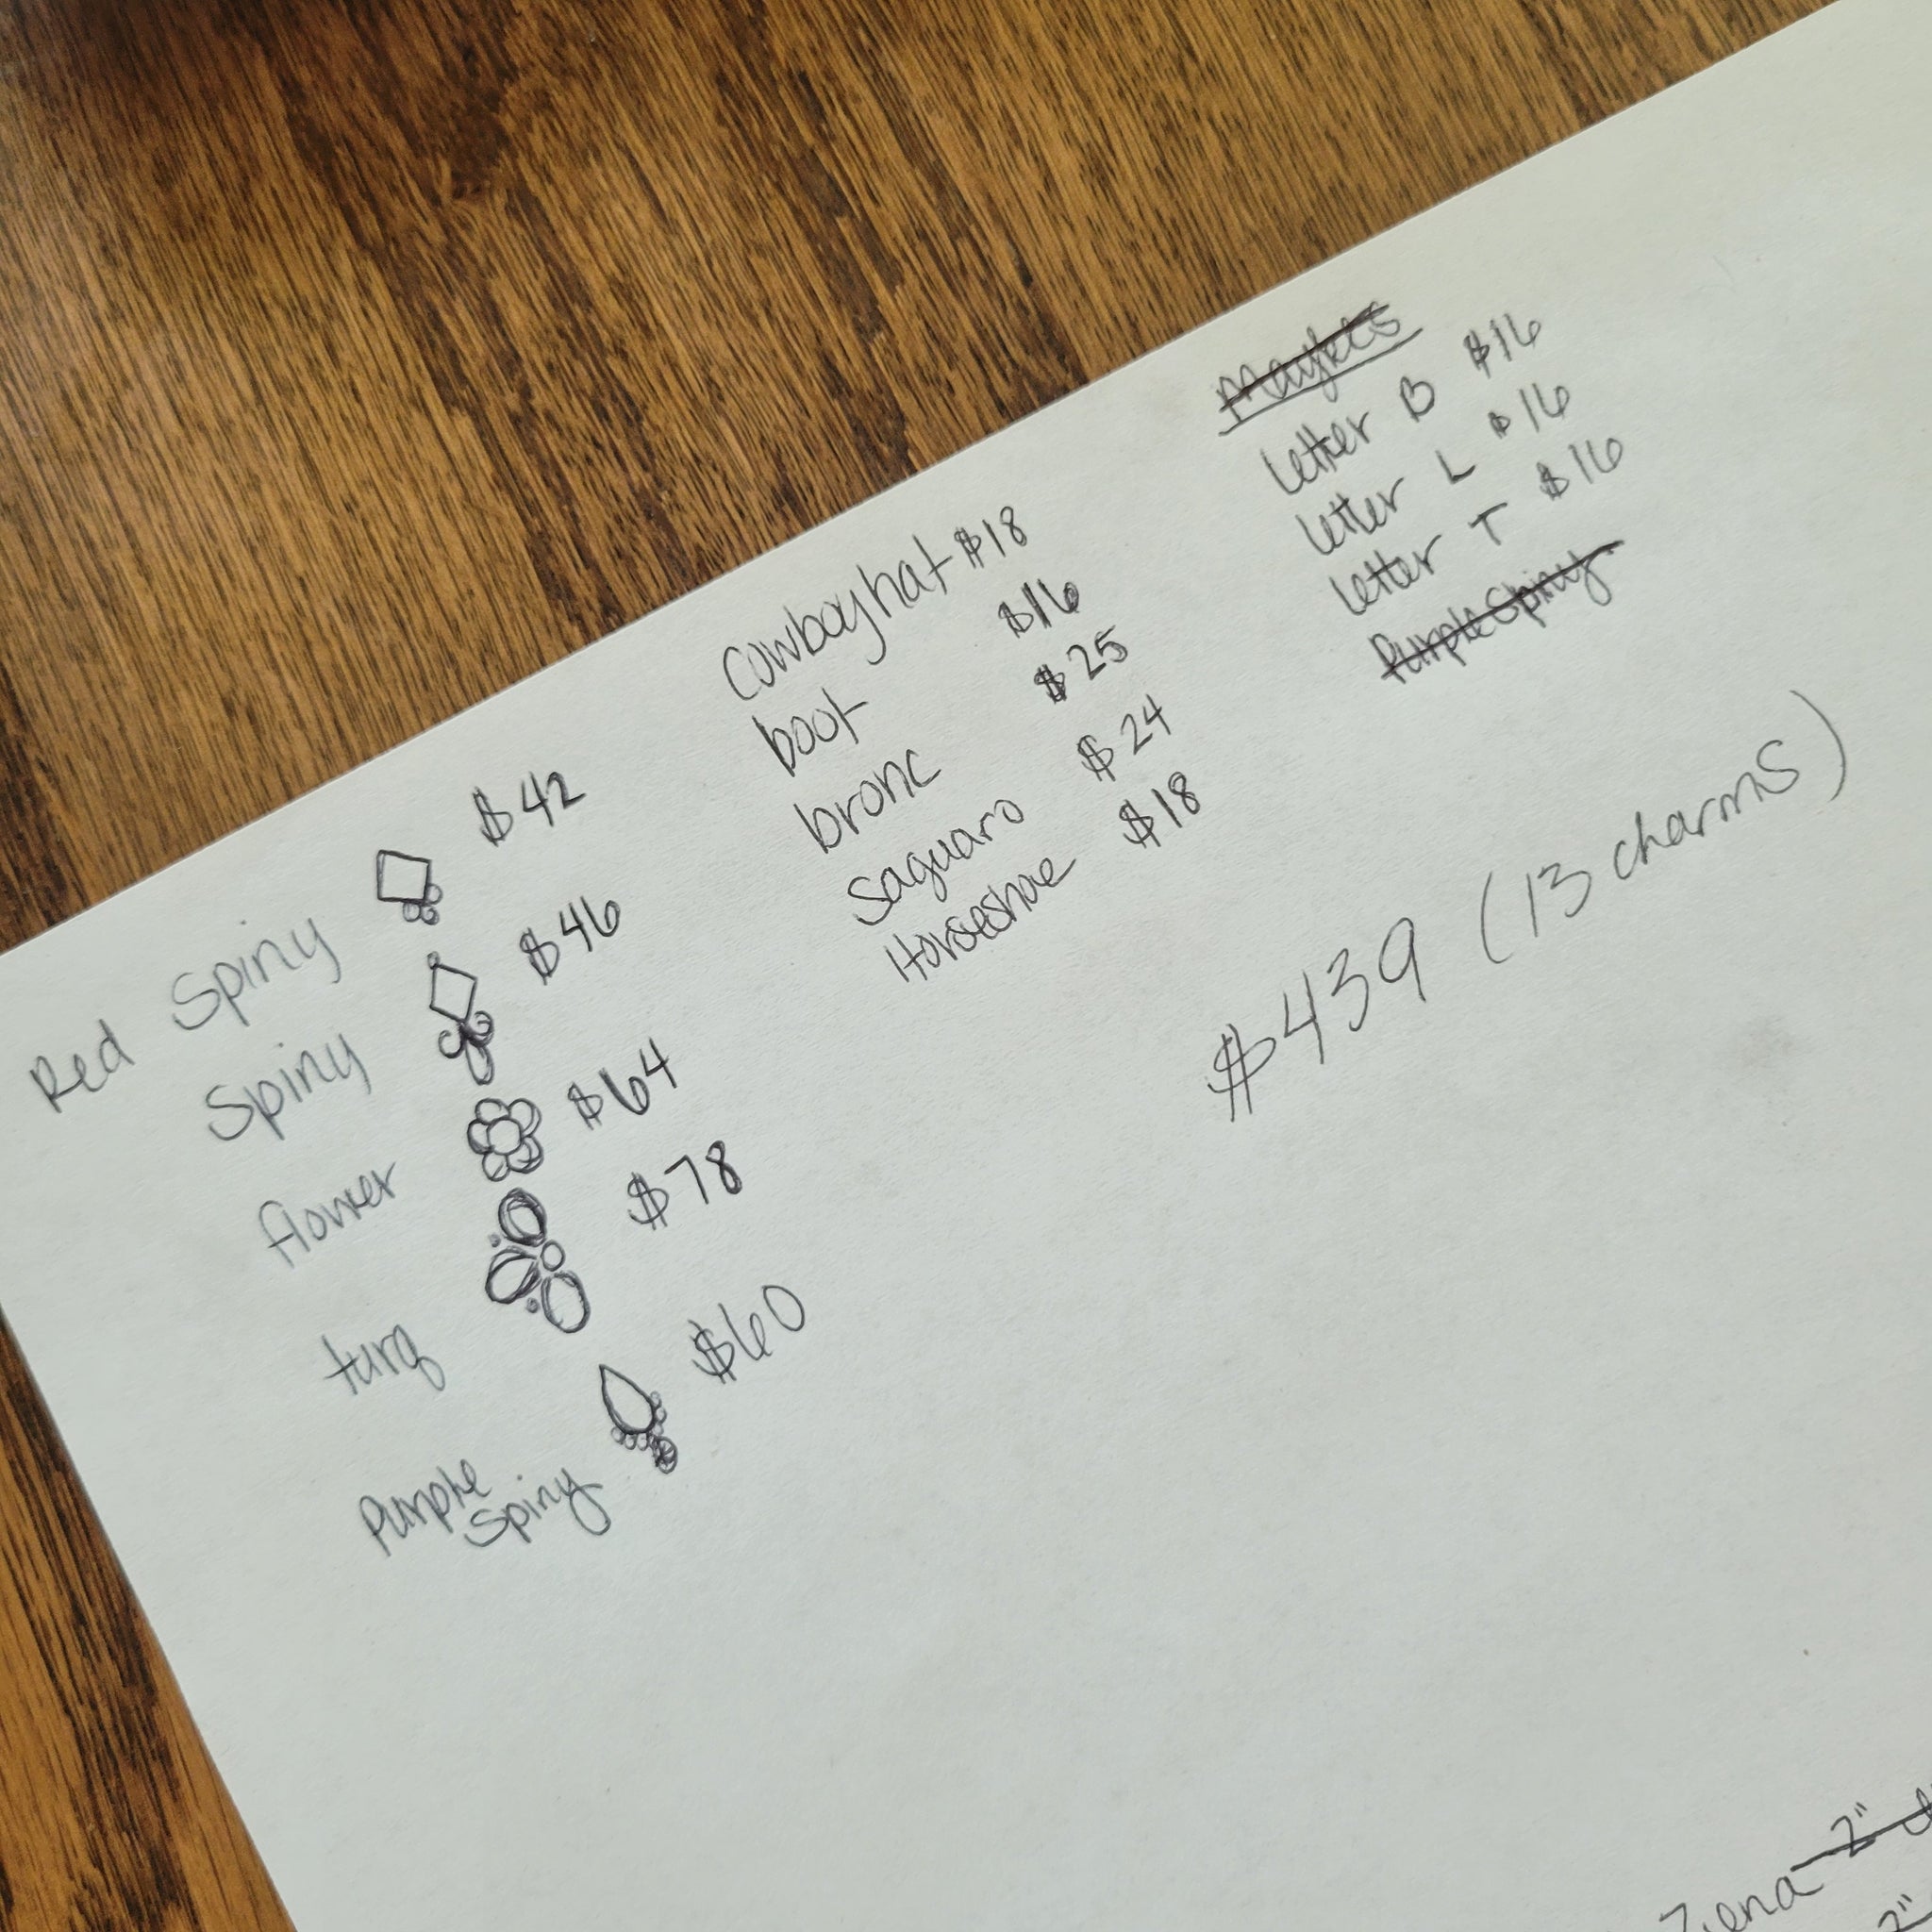 Red Spiny $42
Spiny $46
flower $64
turq $78
Purple
Spiny $60
Cowboy hat $18
boot $16
bronc $25
Saguaro $24
Horseshoe $18
Letter B $16
Letter L $16
Letter T $16
Purple Spiny
$439 (13 charms)
2"
2"